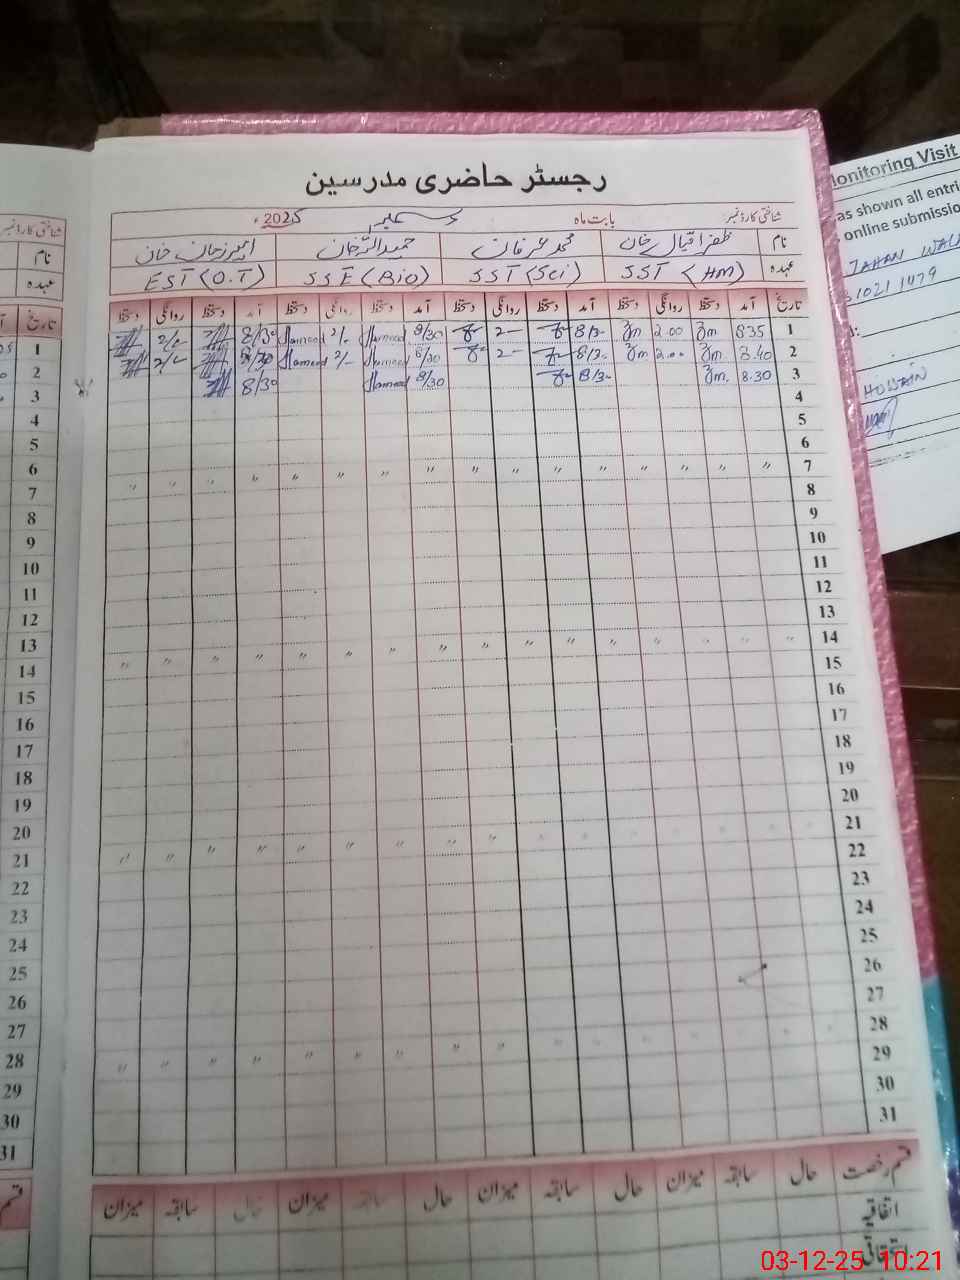 رجسٹر حاضری مدرسین
شناختی کارڈ نمبر بابت ماہ دسمبر 2025ء
نام ظفر اقبال خان محمد عرفان حمید الرحمان
عہدہ SST (HM) SST (Sci) SSE (Bio) EST (O.T)
تاریخ آمد دستخط روانگی دستخط آمد دستخط روانگی دستخط آمد دستخط روانگی دستخط آمد دستخط روانگی دستخط
1 8.35 Zm 2.00 Zm 8/3- 2- 8/30 Hameed 2/- Hameed 8/30 2/-
2 8.40 Zm 2.00 Zm 8/3- 2- 8/30 Hameed 2/- Hameed 2/-
3 8.30 Zm. 8/3- 8/30 Hameed 8/30
4
5
6
7 " " " " " " " " " " " " " " " "
8
9
10
11
12
13
14 " " " " " " " " " " " " " " " "
15
16
17
18
19
20
21 " " " " " " " " " " " " " " " "
22
23
24
25
26
27
28 " " " " " " " " " " " " " " " "
29
30
31
قسم رخصت حال سابقہ میزان حال سابقہ میزان حال سابقہ میزان حال سابقہ میزان
اتفاقیہ
استحقاقی
شناختی کارڈ نمبر
نام
عہدہ
تاریخ
1
2
3
4
5
6
7
8
9
10
11
12
13
14
15
16
17
18
19
20
21
22
23
24
25
26
27
28
29
30
31
قسم
Monitoring Visit
as shown all entri
online submissio
JAHAN WALI
31021 1479
HUSSAIN
03-12-25 10:21